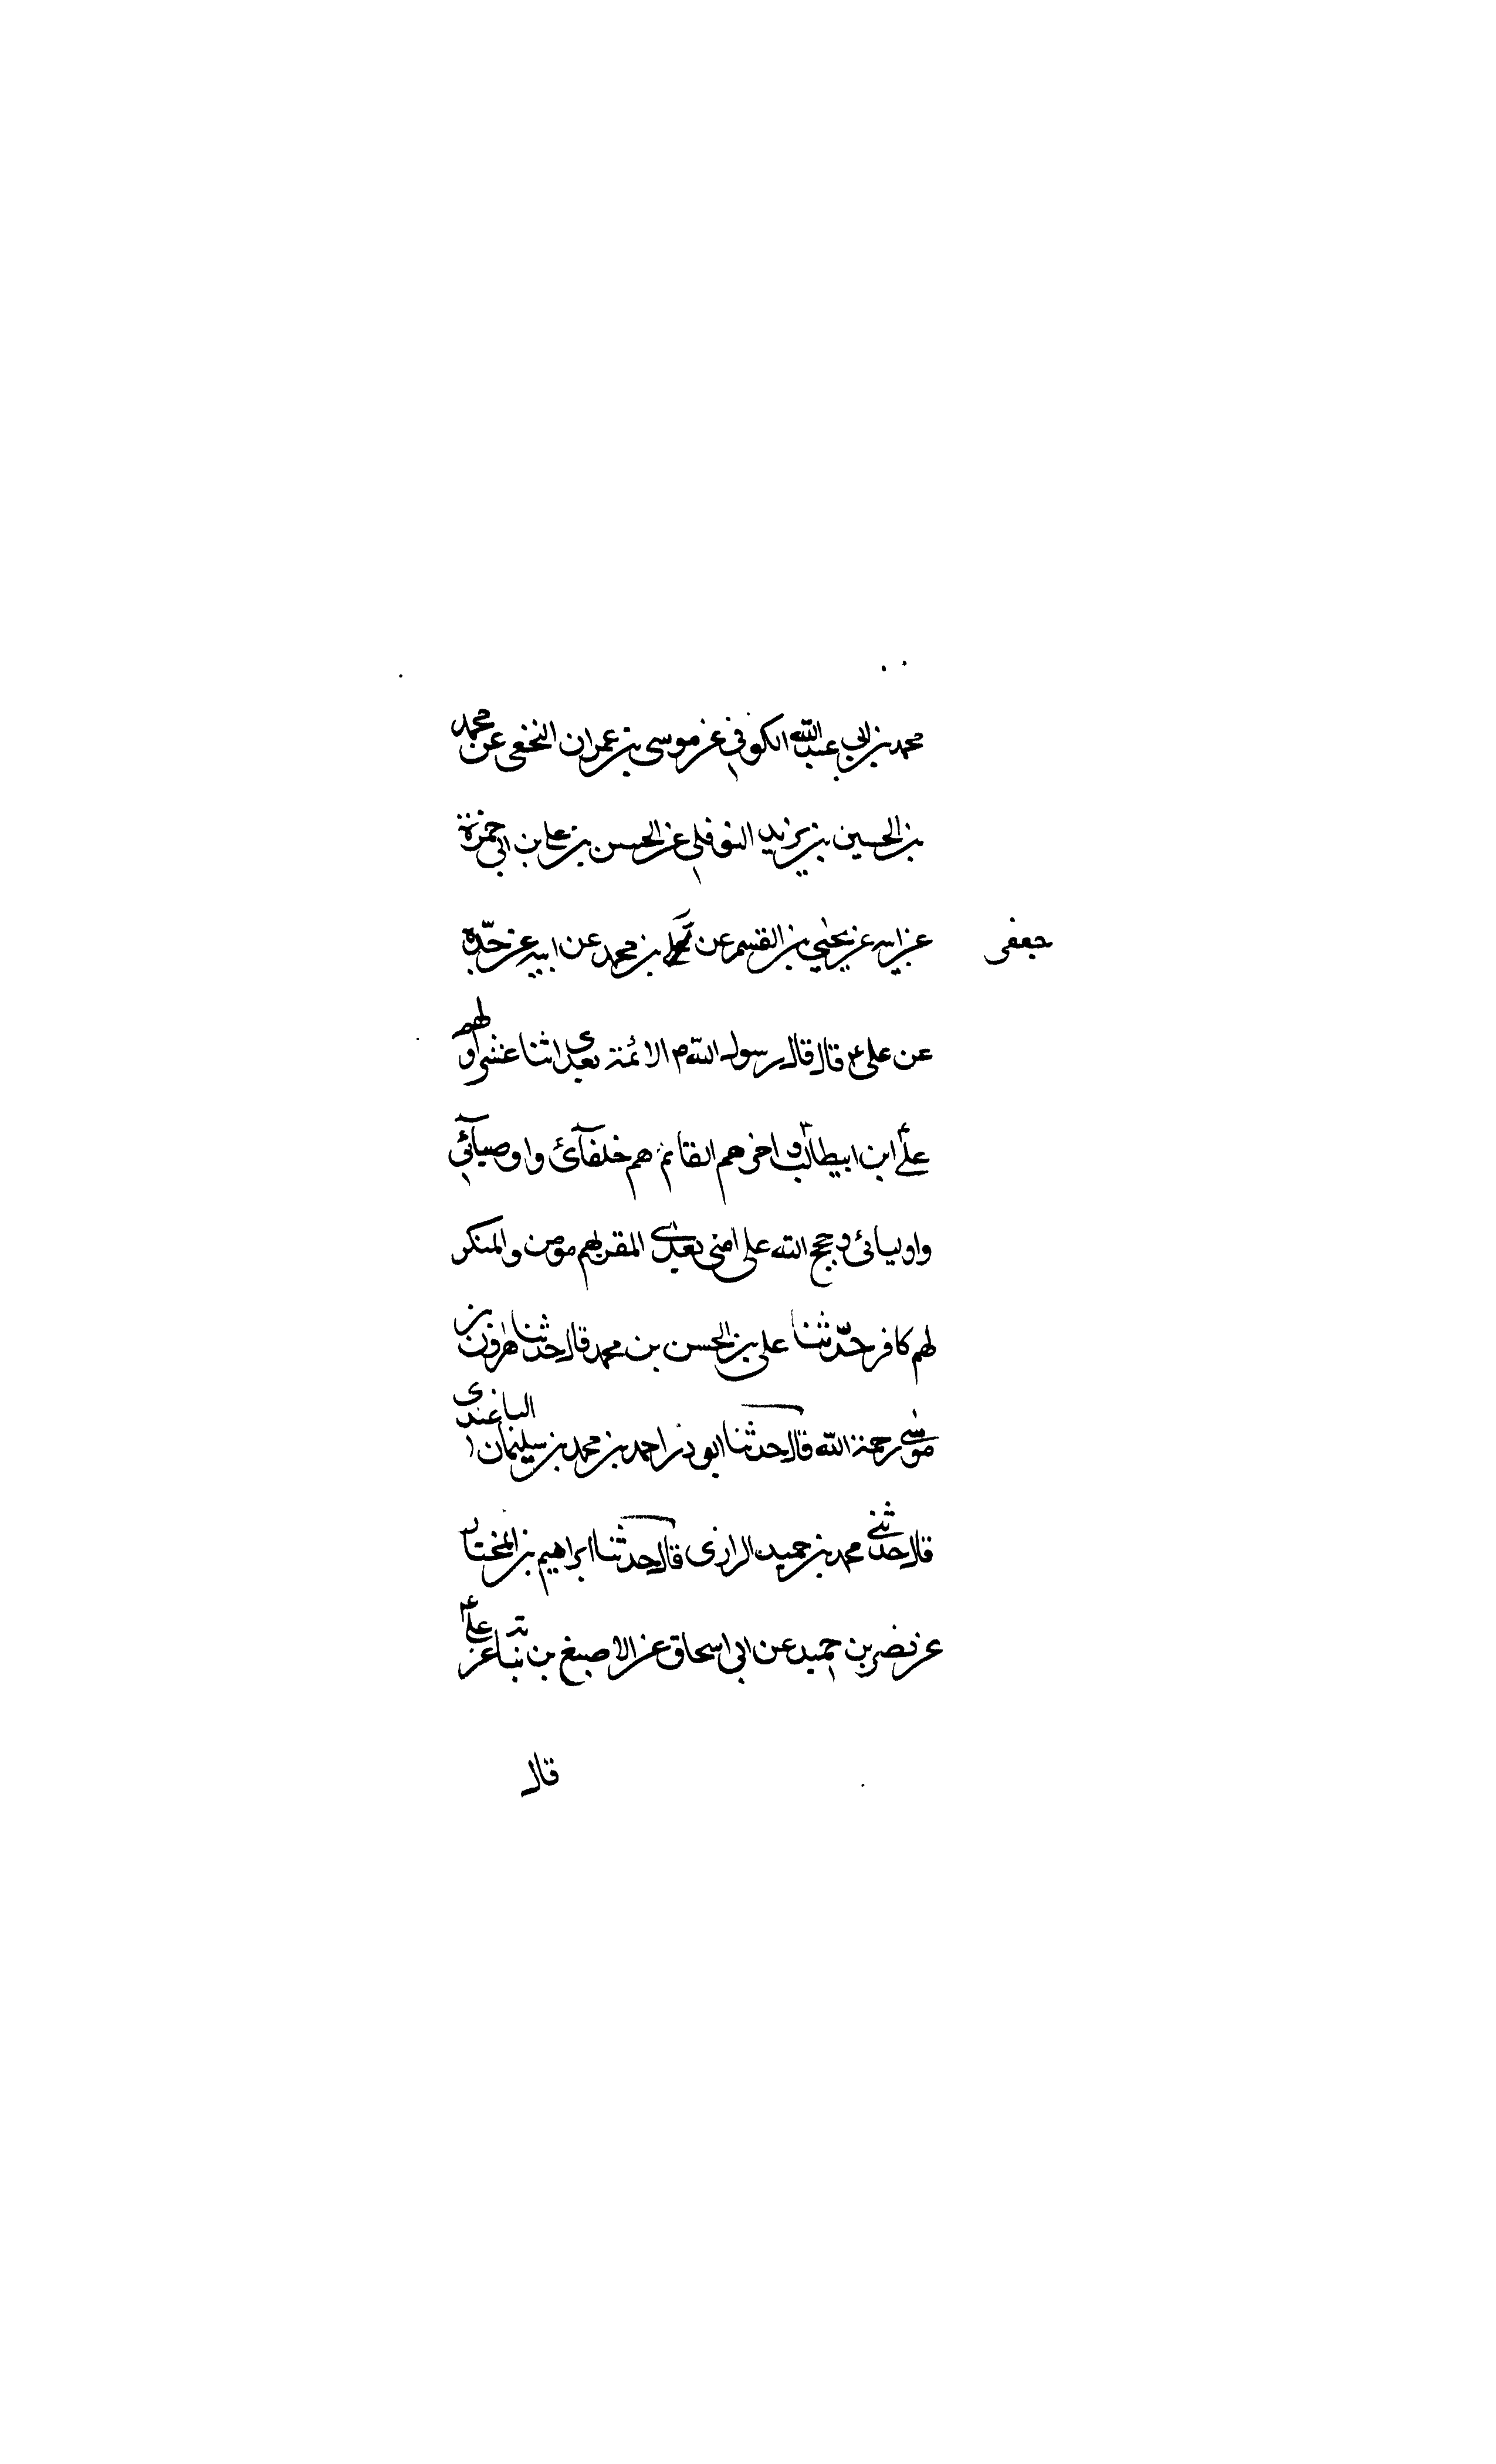 محمد بن ابي عبد الله الكوفي عن موسى بن عمران النخعي عن محمد
بن الحسين بن يزيد النوفلي عن الحسن بن علي بن ابي حمزة
عن ابيه عن يحيى بن القسم عن بن محمد عن ابيه عن جدّه
جعفر
عن علي ع قال قال رسول الله ص الائمة بعدى اثنا عشر اولهم
علي ابن ابيطالب و اخرهم القائم هم خلفآئ و اوصيآئي
و اوليائ و حجج الله على امتى بعدى المقر بهم مومن و المنكر
لهم كافر حدّثنا علي بن الحسن بن محمد قال حدثنا هرون بن
موسى رحمة الله قال حدثنا ابو ذر احمد بن محمد بن سليمان الباغندى
قال حدثني محمد بن حميد الرازى قال حدثنا ابراهيم بن المختار
عن نضر بن حميد عن ابى اسحاق عن الاصبغ بن نباتة عن علي ع
قال